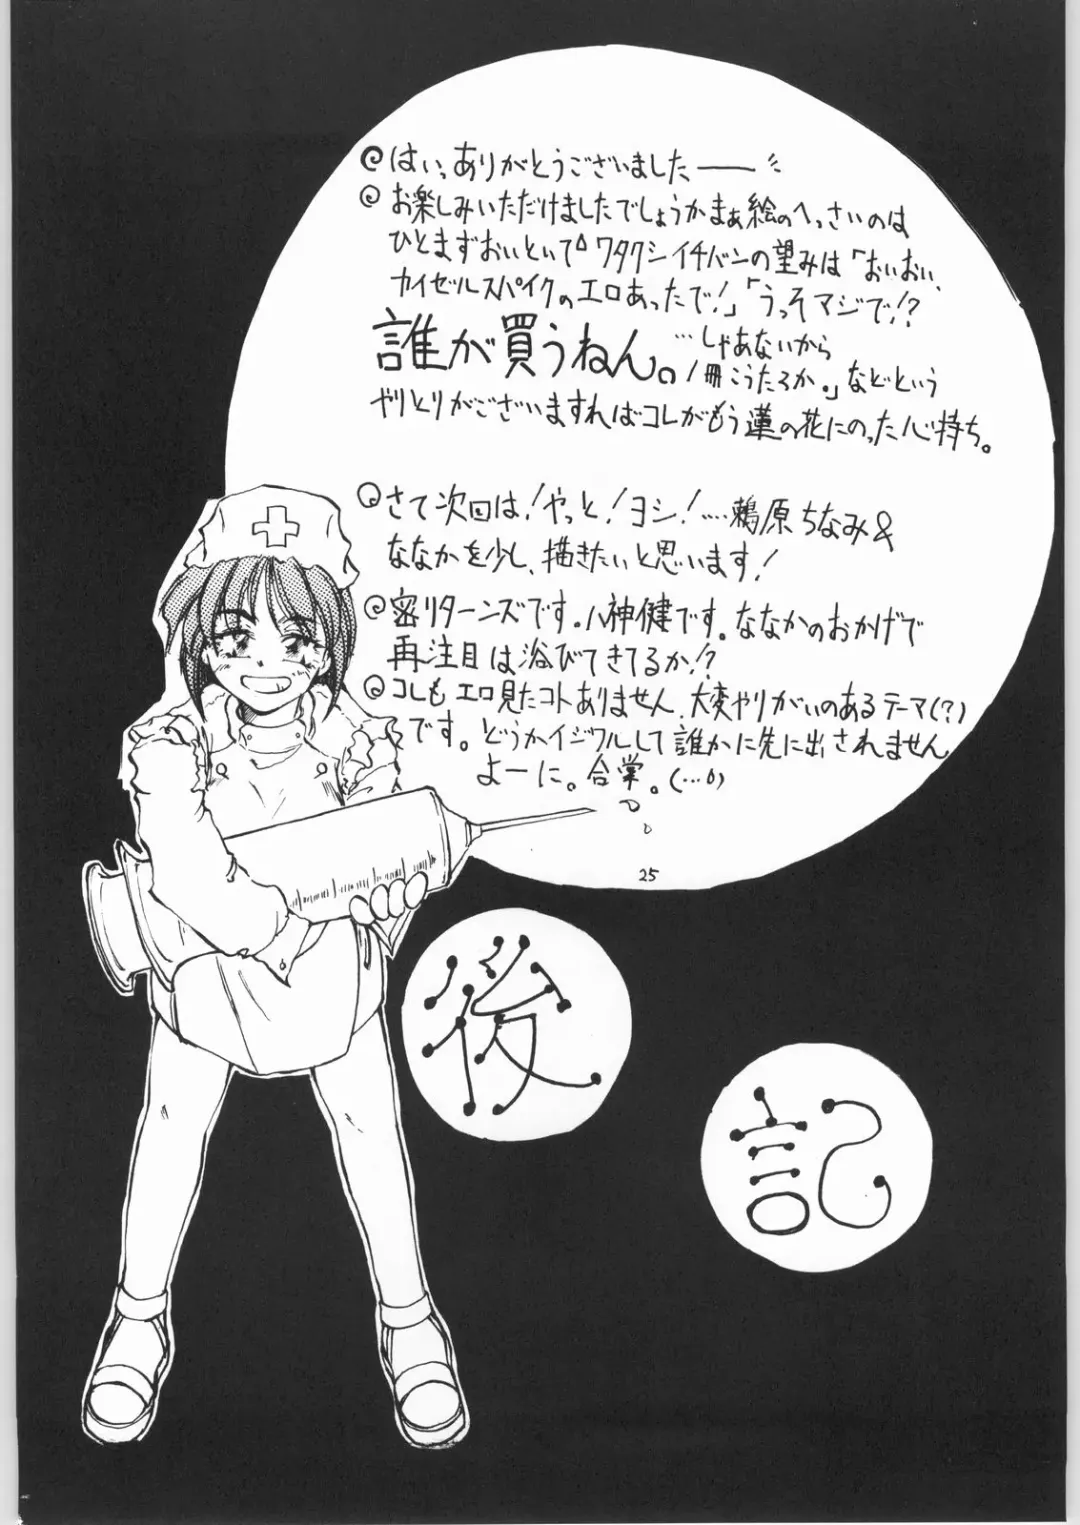 はいっありがとうございました——
お楽しみいただけましたでしょうかまぁ絵のへっさいのは
ひとまずおいといて ワタクシイチバンの望みは「おいおい、
カイゼルスパイクのエロあったで!」「うっそマジで!?
誰が買うねん。…しゃあないから
1冊こうたろか。」などという
やりとりがございますればコレがもう蓮の花にのった心持ち。
さて次回は!やっと!ヨシ!……鵜原ちなみ&
ななかを少し、描きたいと思います!
密リターンズです。八神健です。ななかのおかげで
再注目は浴びてきてるか!?
コレもエロ見たコトありません、大変やりがいのあるテーマ(?)
です。どうかイジワルして誰かに先に出されません
よーに。合掌。(…0)
25
後
記